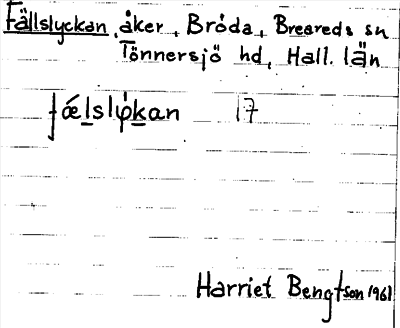 Fällslyckan, åker, Bröda, Breareds sn
Tönnersjö hd, Hall. län
fǽlslykan 17
Harriet Bengtson 1961